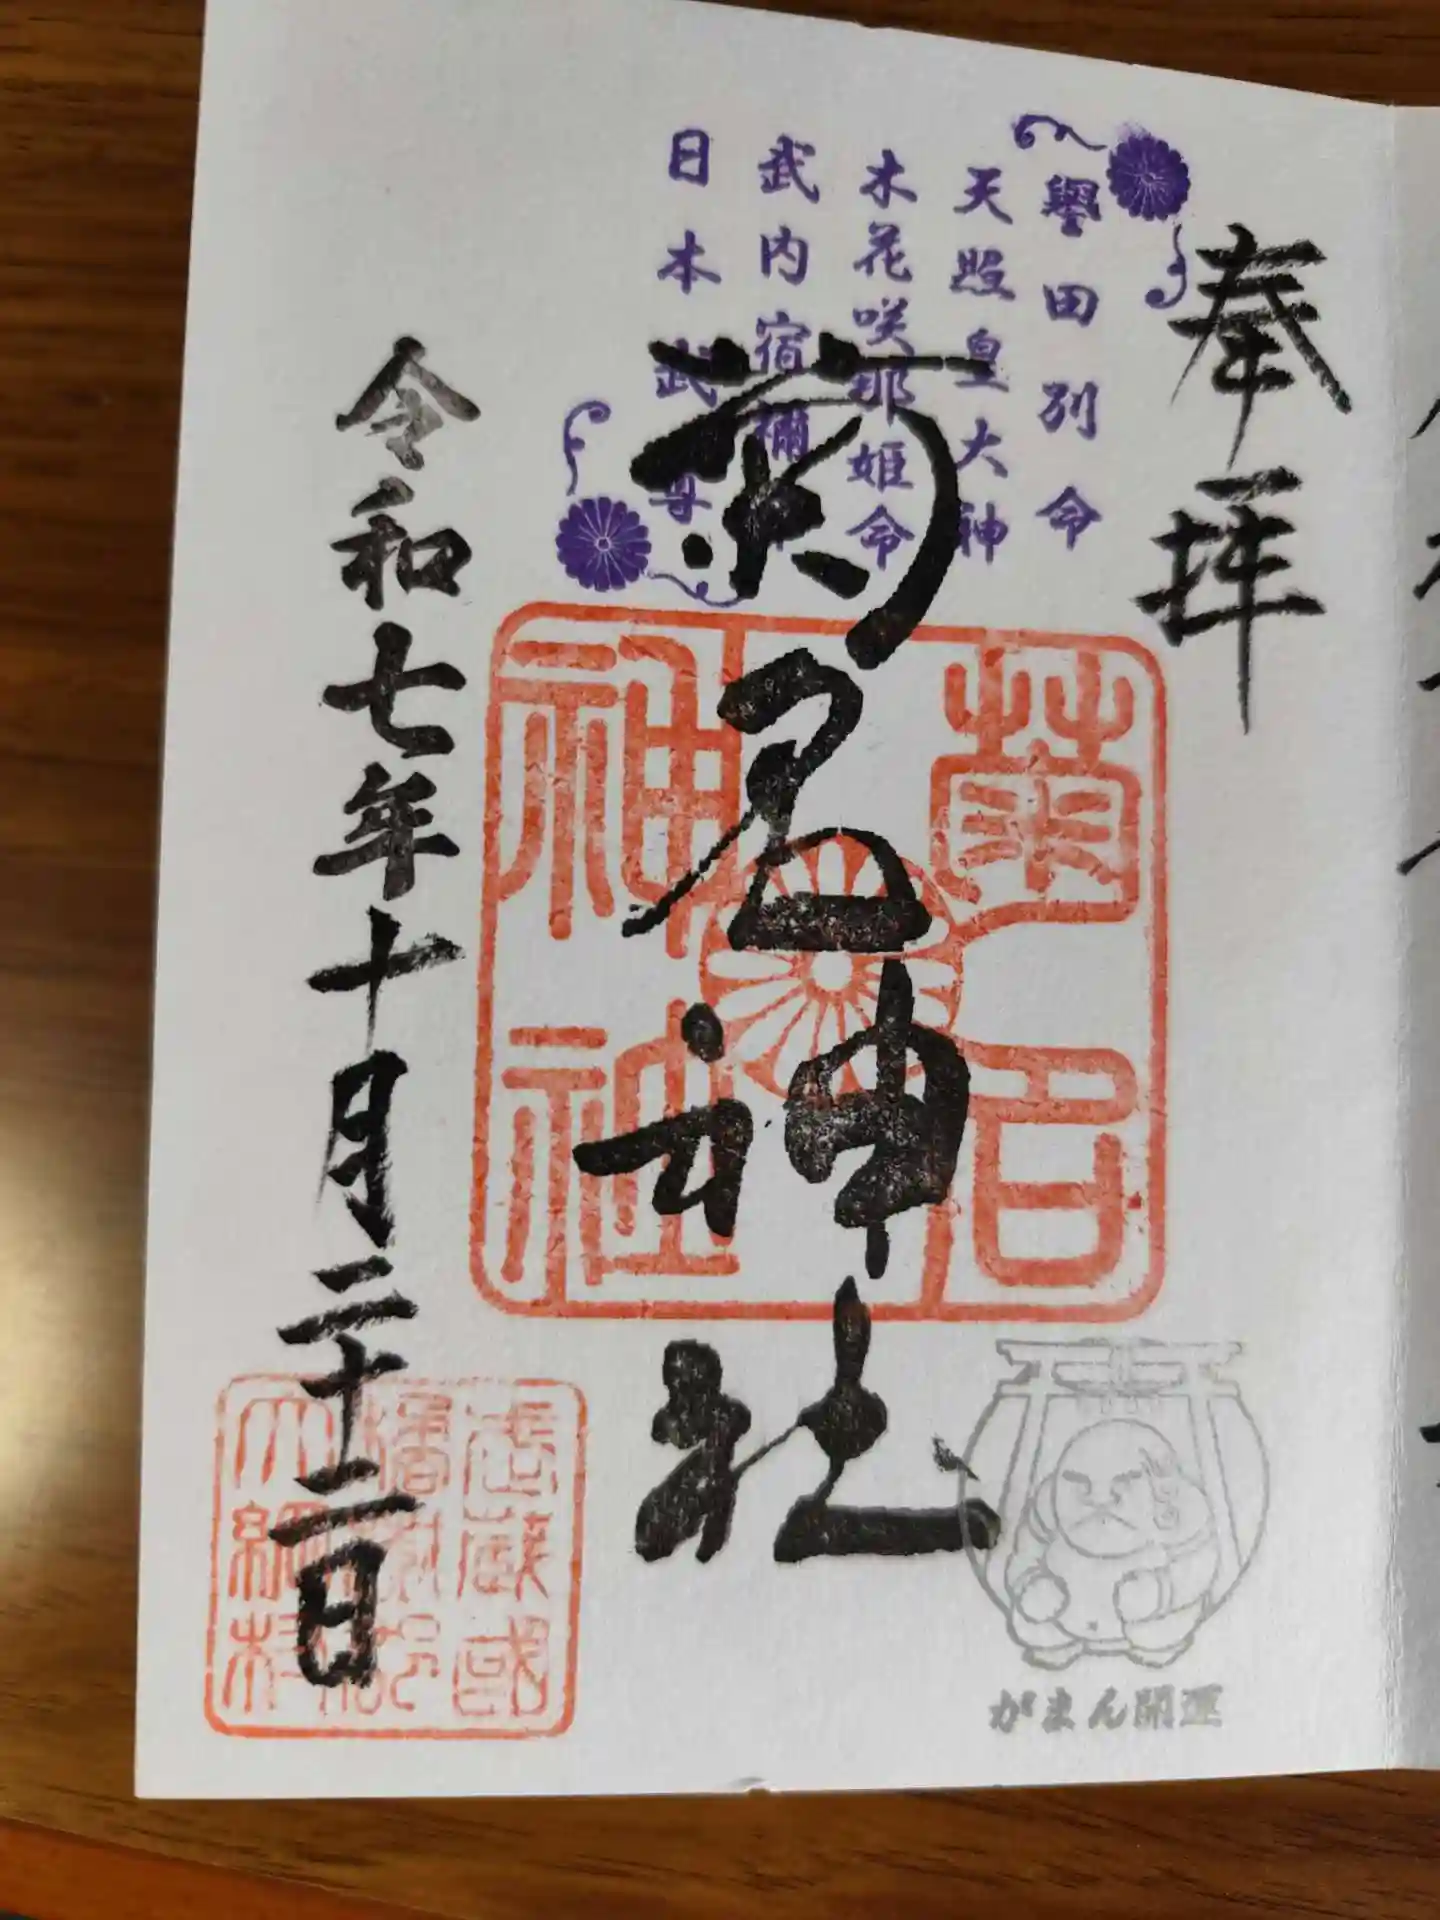 奉拝
譽田別命
天照皇大神
木花咲耶姫命
武内宿禰命
日本武尊
菊名神社
菊名神社
令和七年十月二十二日
武蔵國
橘樹郡
大綱村
がまん開運